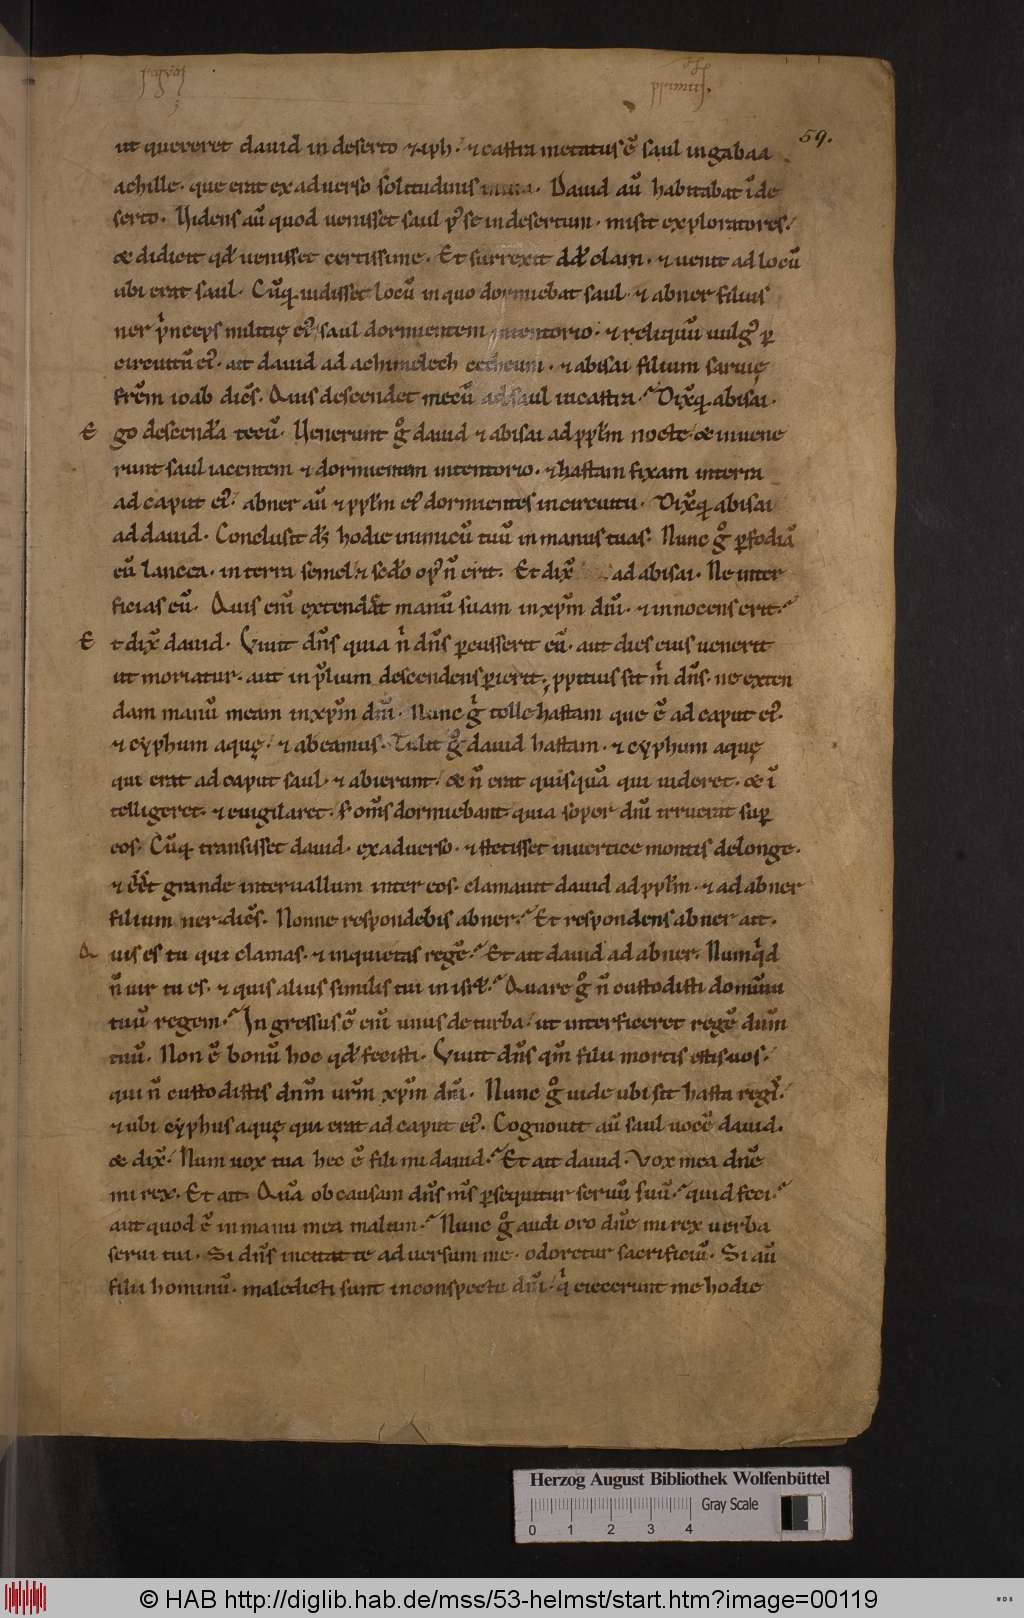 59.
ut quereret dauid in deserto &iph. & castra metatus ē saul in gabaa
achille. que erat ex aduerso solitudinis in uia. Dauid aū habitabat ī de
serto. Uidens aū quod uenisset saul p᷒ se in desertum. misit exploratores.
& didicit qđ uenisset certissime. Et surrexit dđ clam. & uenit ad locū
ubi erat saul. Cūq. uidisset locū in quo dormiebat saul. & abner filius
ner p̍nceps militię ei᷒. saul dormientem in tentorio. & reliquū uulg᷒ ꝑ
circuitū ei᷒. ait dauid ad achimelech cetheum. & abisai filium saruię
frēm ioab dicēs. Quis descendet mecū ad saul in castra. Dix̄q. abisai.
E go descendā tecū. Uenerunt g̊ dauid & abisai ad ppłm nocte & inuene
runt saul iacentem & dormientem in tentorio. & hastam fixam in terra
ad caput ei᷒. abner aū & ppłm ei᷒ dormientes in circuitu. Dix̄q. abisai
ad dauid. Conclusit dš hodie inimicū tuū in manus tuas. Nunc g̊ ꝑfodiā
eū lancea. in terra semel & sedo op᷒ ñ erit. Et dix̄ ad abisai. Ne inter
ficias eū. Quis enī extendet manū suam in xpm̄ dnī. & innocens erit.
E t dix̄ dauid. Uiuit dn̄s quia n̍ dn̄s ꝑcusserit eū. aut dies eius uenerit
ut moriatur. aut in p̄lium descendens ꝑierit. ꝓpitius sit m̍ dn̄s. ne exten
dam manū meam in xpm̄ dnī. Nunc g̍ tolle hastam que ē ad caput ei᷒.
& cyphum aquę. & abeamus. Tulit g̊ dauid hastam. & cyphum aquę
qui erat ad caput saul. & abierunt. & ñ erat quisquā qui uideret. & ī
telligeret. & euigilaret. s̄ om̄s dormiebant quia sopor dnī irruerat suꝑ
eos. Cūq. transisset dauid. ex aduerso. & stetisset in uertice montis de longe.
& eēt grande interuallum inter eos. clamauit dauid ad ppłm. & ad abner
filium ner. dicēs. Nonne respondebis abner. Et respondens abner ait.
Q uis es tu qui clamas. & inquietas regē. Et ait dauid ad abner. Numq̍d
ñ uir tu es. & quis alius similis tui in isrł. Quare g̊ ñ custodisti dominū
tuū regem. Ingressus ē enī unus de turba. ut interficeret regē dnm̄
tuū. Non ē bonū hoc qđ fecisti. Uiuit dn̄s qm̄ filii mortis estis uos.
qui ñ custodistis dnm̄ urm̄ xpm̄ dnī. Nunc g̊ uide ubi sit hasta reg᷒.
& ubi cyphus aquę qui erat ad caput ei᷒. Cognouit aū saul uocē dauid.
& dix̄. Num uox tua hec ē fili mi dauid. Et ait dauid. Uox mea dnē
mi rex. Et ait. Quā ob causam dn̄s m̄s ꝑsequitur seruū suū. quid feci.
aut quod ē in manu mea malum. Nunc g̊ audi oro dnē mi rex uerba
serui tui. Si dn̄s incitat te aduersum me. odoretur sacrificiū. Si aū
filii hominū. maledicti sunt in conspectu dnī. q̍ eiecerunt me hodie
Herzog August Bibliothek Wolfenbüttel
Gray Scale
0 1 2 3 4
© HAB http://diglib.hab.de/mss/53-helmst/start.htm?image=00119